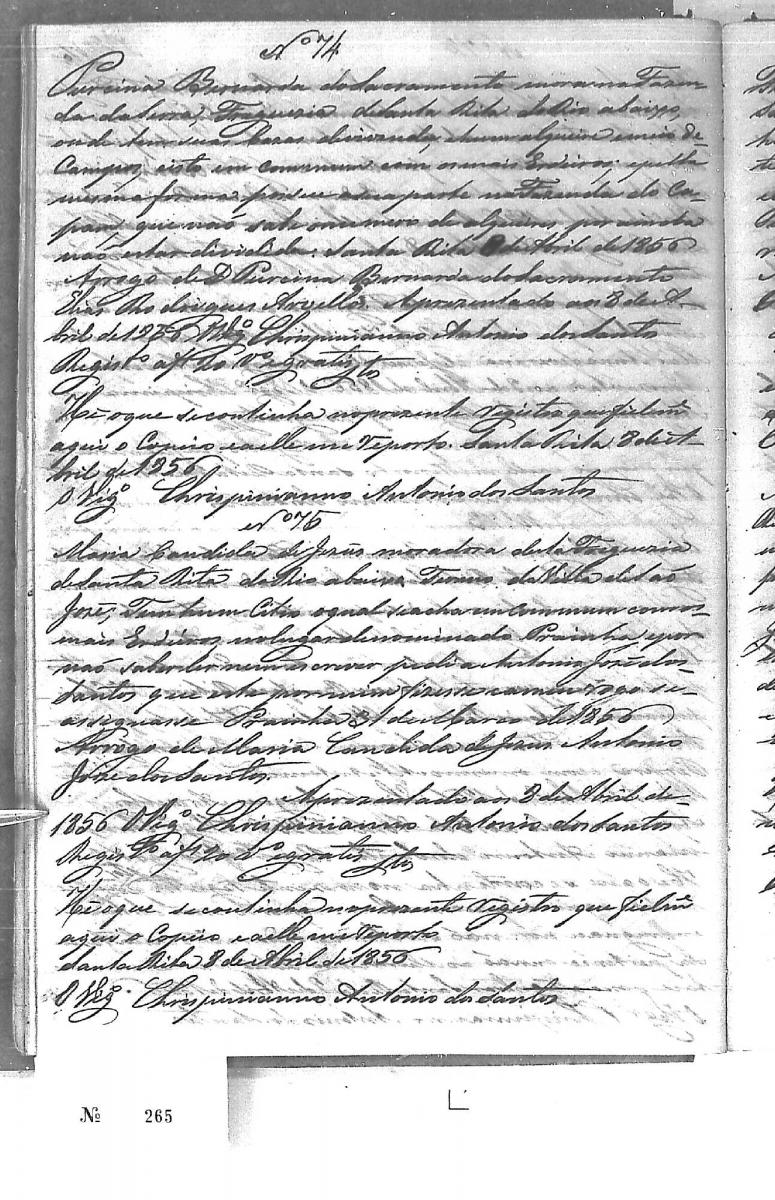 Nº 74
Purcina Bernarda do Sacramento mora na Fazen-
da da Serra, Freguezia de Santa Rita do Rio abaixo,
onde tem suas Cazas de vivenda, e hum alqueire e meio de
Campos, isto em commum com os mais Erdeiros: e pella
mesma forma possue sua parte na Fazenda do Ca-
pam, que não sabe o numero de alqueires, por ainda
não estar dividida. Santa Rita 8 de Abril de 1856
A rogo de D. Purcina Bernarda do Sacramento
Elias Rodrigues Aprezentado aos 8 de A-
bril de 1856 O Vigº Chrispinianno Antonio dos Santos
Registº a f 20 Vº e gratis Stos
He o que se continha no prezente registro que fielmẽ
aqui o Copiei e a elle me reporto. Santa Rita 8 de A-
bril de 1856
O Vigº Chrispinianno Antonio dos Santos
Nº 75
Maria Candida de Jezus moradora desta Freguezia
de Santa Rita do Rio abaixo Termo da Villa de São
José, Tem hum Citio o qual se acha em commum com os
mais Erdeiros no lugar denominado Prainha, e por
não saber ler nem escrever pedi a Antonio José dos
Santos que este por mim fizesse e a meu rogo se
assignasse Prainha 31 de Marco de 1856
A rrogo de Maria Candida de Jezus Antonio
José dos Santos
Aprezentado aos 8 de Abril de
1856 O Vigº Chrispinianno Antonio dos Santos
Registº a f 20 Vº e gratis Stos
He o que se continha no prezente registro que fielmẽ
aqui o Copiei e a elle me reporto
Santa Rita 8 de Abril de 1856
O Vigº Chrispinianno Antonio dos Santos
Nº 265